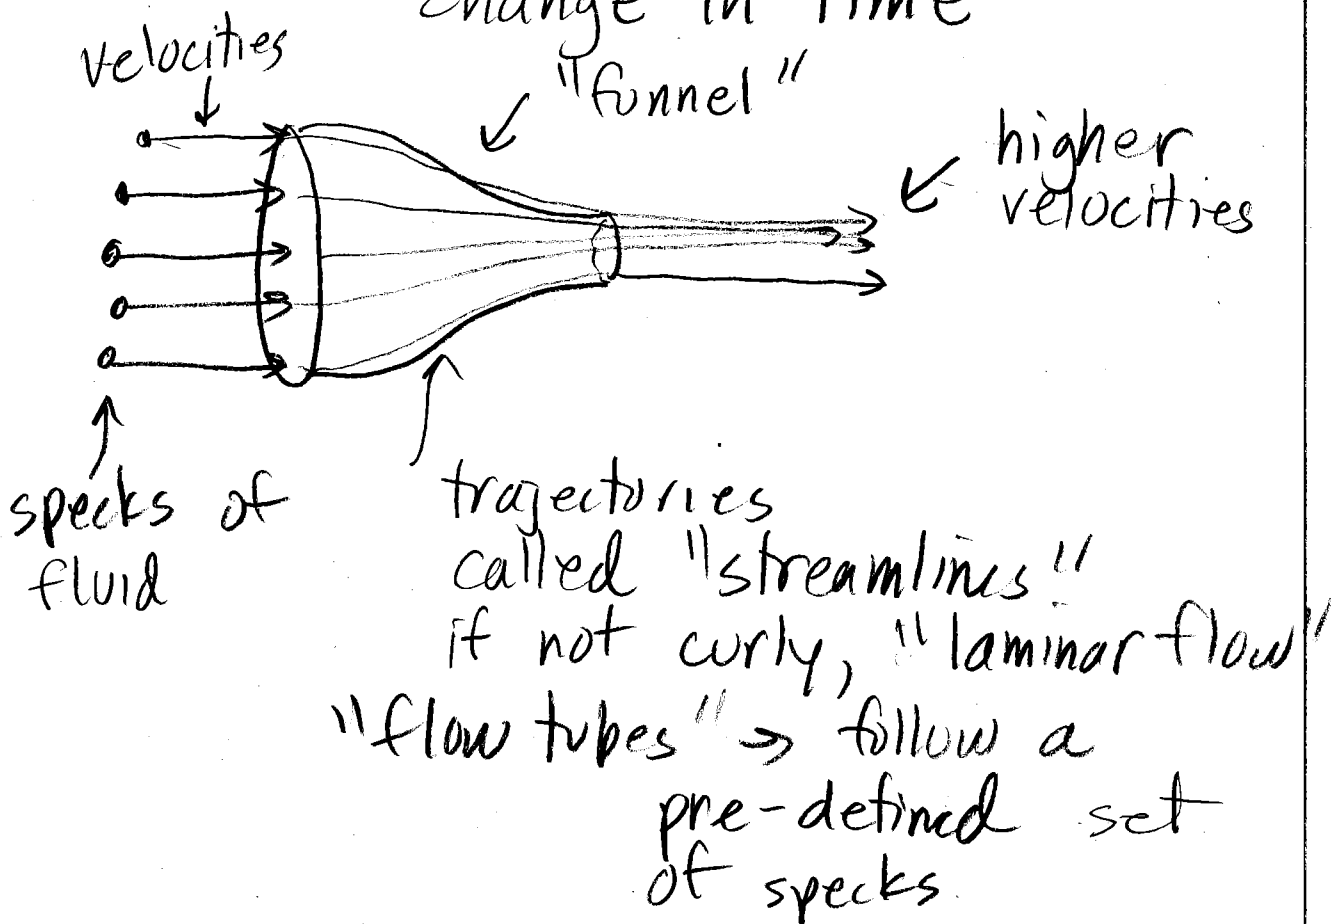 change in time
velocities
"funnel"
higher
velocities
specks of
fluid
trajectories
called "streamlines"
if not curly, "laminar flow"
"flow tubes" → follow a
pre-defined set
of specks